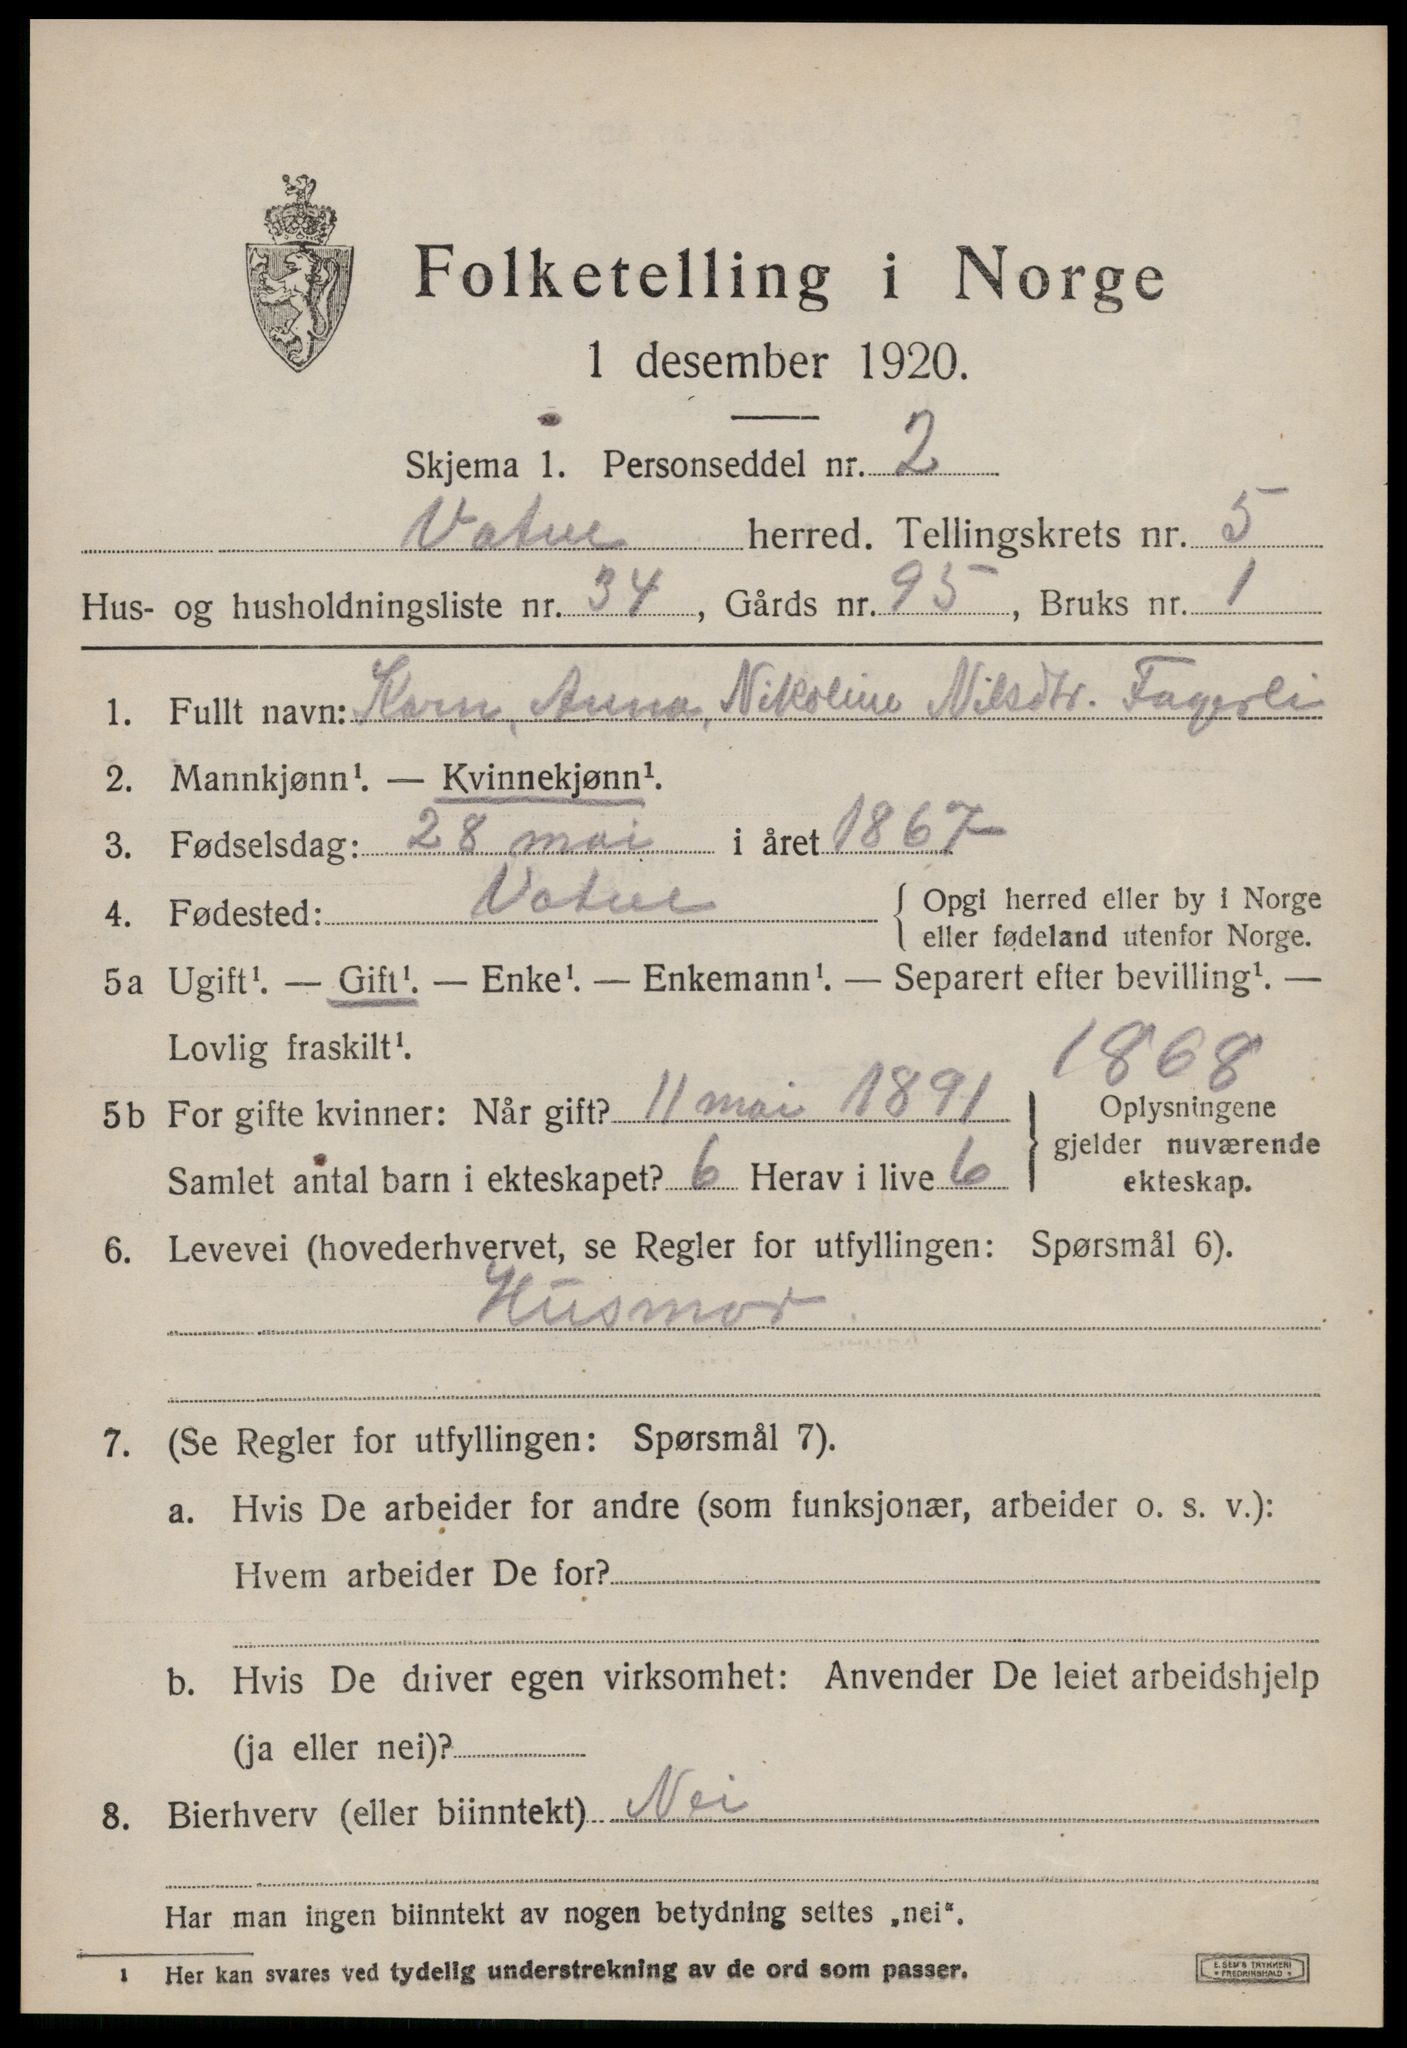 Folketelling i Norge
1 desember 1920.
Skjema 1. Personseddel nr. 2
Vatne herred. Tellingskrets nr. 5
Hus- og husholdningsliste nr. 34, Gårds nr. 95, Bruks nr. 1
1. Fullt navn: Karn, Anna, Nikoline Nilsdtr. Fagerli
2. Mannkjønn¹. — Kvinnekjønn¹.
3. Fødselsdag: 28 mai i året 1867
4. Fødested: Vatne { Opgi herred eller by i Norge
eller fødeland utenfor Norge.
5a Ugift¹. — Gift¹. — Enke¹. — Enkemann¹. — Separert efter bevilling¹. —
Lovlig fraskilt¹.
1868
5b For gifte kvinner: Når gift? 11 mai 1891 } Oplysningene
gjelder nuværende
Samlet antal barn i ekteskapet? 6 Herav i live 6 ekteskap.
6. Levevei (hovederhvervet, se Regler for utfyllingen: Spørsmål 6).
Husmor.
7. (Se Regler for utfyllingen: Spørsmål 7).
a. Hvis De arbeider for andre (som funksjonær, arbeider o. s. v.):
Hvem arbeider De for?
b. Hvis De driver egen virksomhet: Anvender De leiet arbeidshjelp
(ja eller nei)?
8. Bierhverv (eller biinntekt) Nei
Har man ingen biinntekt av nogen betydning settes „nei“.
1 Her kan svares ved tydelig understrekning av de ord som passer.
E. SEM'S TRYKKERI
* FREDRIKSHALD *